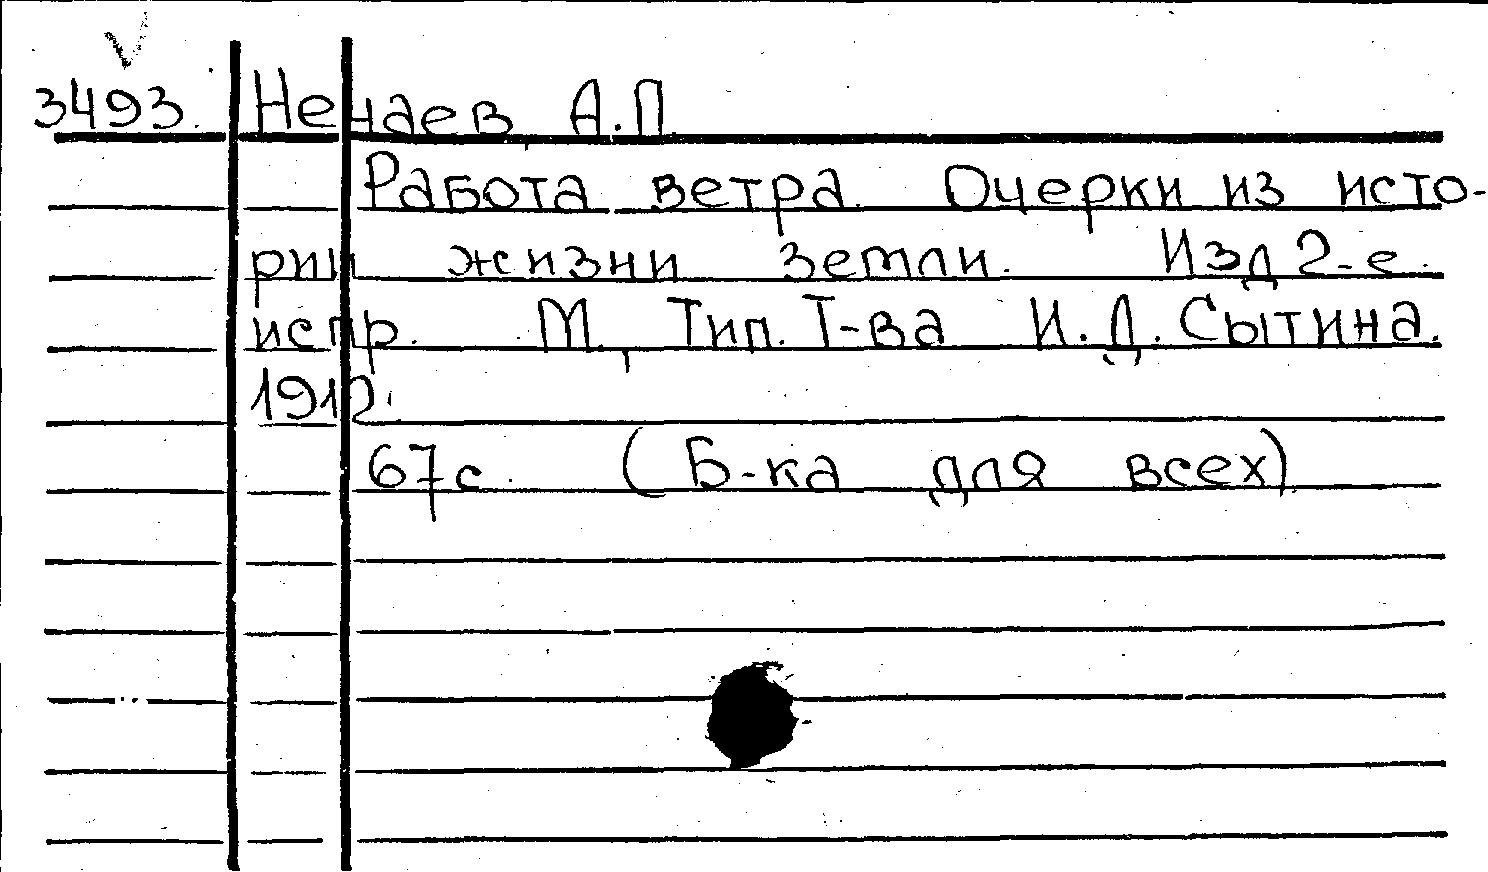 3493. Нечаев А.П
Работа ветра. Очерки из исто-
рии жизни земли. Изд 2-е.
испр. М., Тип. Т-ва И.Д. Сытина.
1912.
67с. (Б-ка для всех)